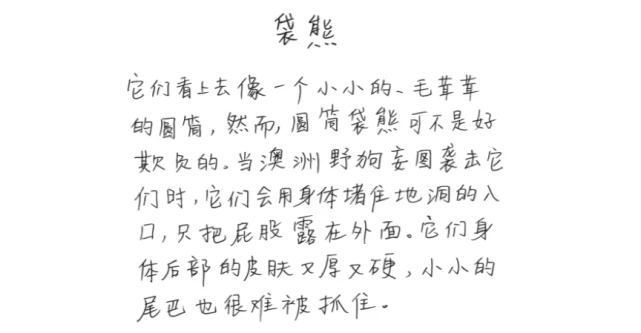 袋熊
它们看上去像一个小小的、毛茸茸
的圆筒,然而,圆筒袋熊可不是好
欺负的。当澳洲野狗妄图袭击它
们时,它们会用身体堵住地洞的入
口,只把屁股露在外面。它们身
体后部的皮肤又厚又硬,小小的
尾巴也很难被抓住。